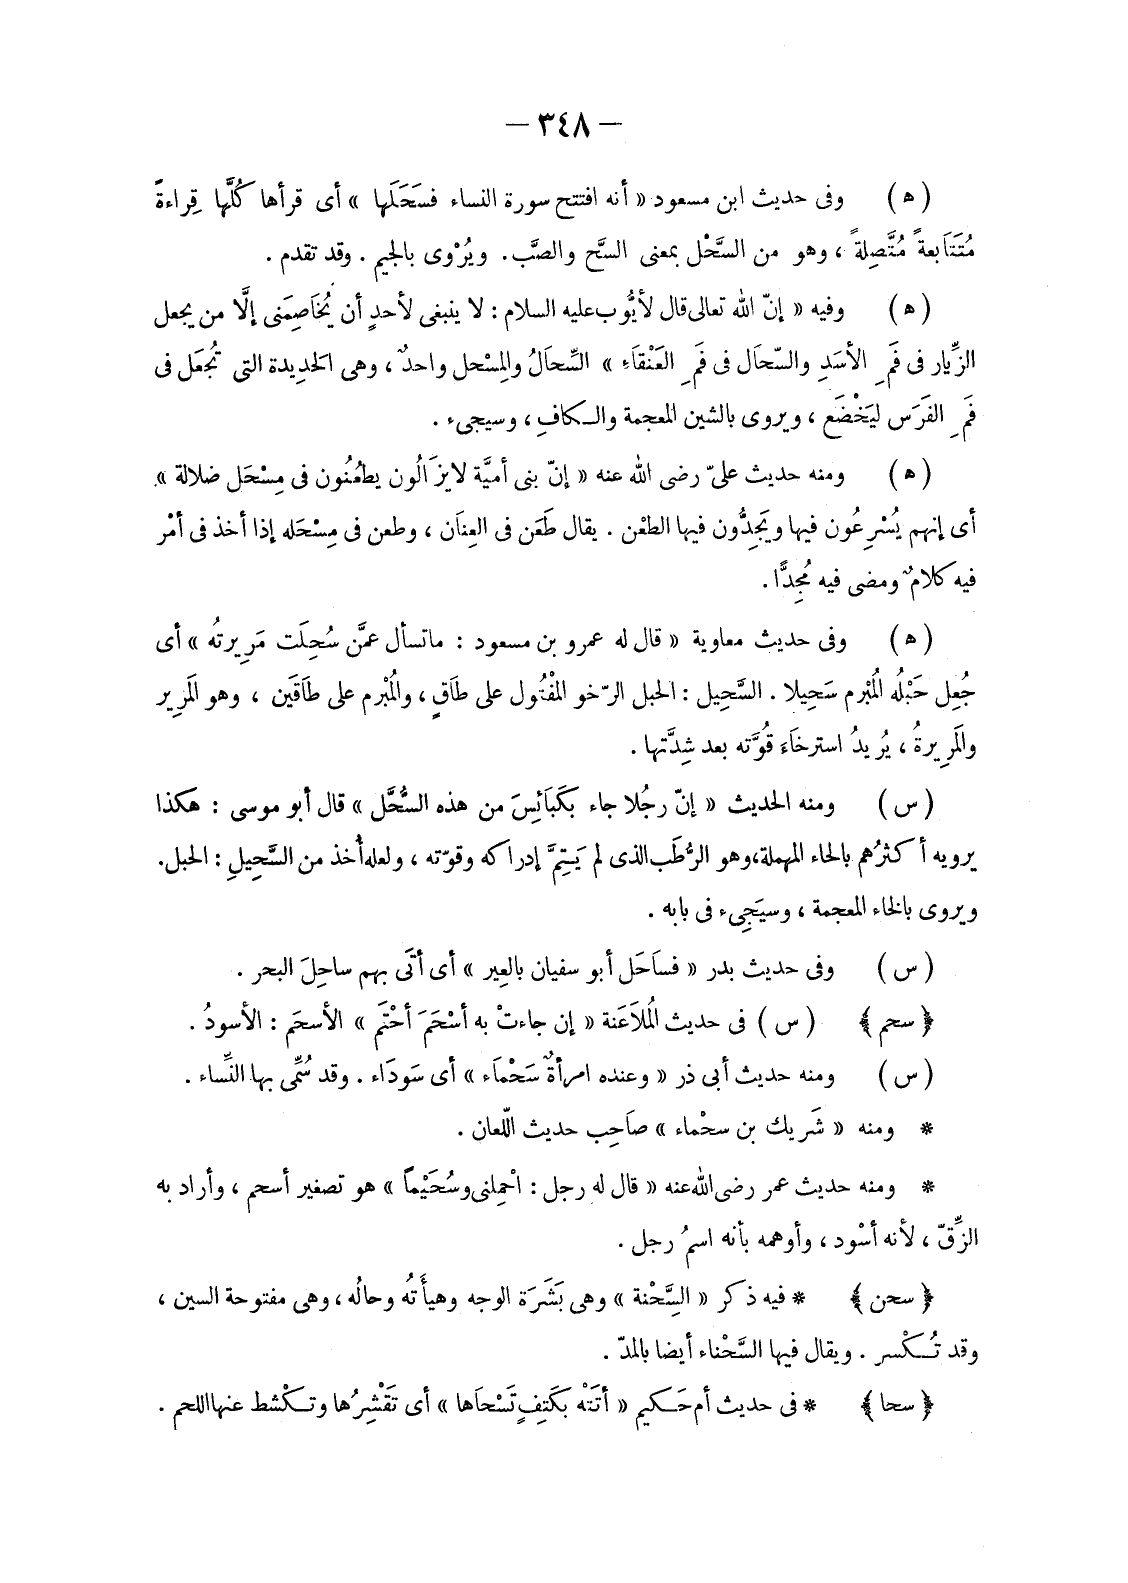 — ٣٤٨ —
( ﻫ ) وفى حديث ابن مسعود « أنه افتتح سورة النساء فسَحَلَها » أى قرأها كُلَّها قِراءةً
مُتَتَابعةً مُتَّصِلةً ، وهو من السَّحْل بمعنى السَّح والصَّب. ويُرْوى بالجيم . وقد تقدم .
( ﻫ ) وفيه « إنّ اللّٰه تعالى قال لأيُّوب عليه السلام : لا ينبغى لأحدٍ أن يُخَاصِمَنى إلَّا من يجعل
الزِّيار فى فَمِ الأسَدِ والسّحاَل فى فَمِ العَنْقاَءِ » السِّحاَلُ والمِسْحل واحدٌ ، وهى الحَدِيدة التى تُجْعَل فى
فَمِ الفَرَس ليَخْضَع ، ويروى بالشين المعجمة والـكافِ ، وسيجىء .
( ﻫ ) ومنه حديث علىّ رضى اللّٰه عنه « إنّ بنى أميَّة لايزَالُون يطعُنُون فى مِسْحَل ضلالة ».
أى إنهم يُسْرِعُون فيها ويَجِدُّون فيها الطعْن . يقال طَعَن فى العِنَان ، وطعن فى مِسْحَله إذا أخذ فى أمْر
فيه كلامٌ ومضى فيه مُجِدًّا .
( ﻫ ) وفى حديث معاوية « قال له عمرو بن مسعود : ماتسأل عمَّن سُحِلَت مَرِيرتُه » أى
جُعِل حَبْلُه المُبْرم سَحِيلا . السَّحِيل : الحبل الرّخو المفْتُول على طاَقٍ ، والمُبْرم على طاَقَين ، وهو المَرِير
والمَرِيرةُ ، يُريدُ استرخَاءَ قُوَّته بعد شِدَّتها .
( س ) ومنه الحديث « إنّ رجُلا جاء بكَبَائِسَ من هذه السُّحَّل » قال أبو موسى : هكذا
يرويه أكثرُهم بالحاء المهملة، وهو الرُّطَب الذى لم يَتِمَّ إدراكه وقوّته ، ولعله أُخذ من السَّحِيلِ : الحبل.
ويروى بالخاء المعجمة ، وسيَجِىء فى بابه .
( س ) وفى حديث بدر « فساَحَل أبو سفيان بالعِير » أى أتَى بهم ساحِلَ البحر .
﴿ سحم ﴾ ( س ) فى حديث المُلاَعَنة « إن جاءتْ به أسْحَمَ أحْتَم » الأسحَم : الأسودُ .
( س ) ومنه حديث أبى ذر « وعنده امرأةٌ سَحْماَء » أى سَودَاء . وقد سُمِّى بها النِّساء .
* ومنه « شَريك بن سحْماء » صاَحِب حديث اللّعان .
* ومنه حديث عمر رضى اللّٰه عنه « قال له رجل : احْمِلنى وسُحَيْماً » هو تصغير أسحم ، وأراد به
الزِّقّ ، لأنه أسْود ، وأوهمه بأنه اسمُ رجل .
﴿ سحن ﴾ * فيه ذكر « السِّحْنة » وهى بَشَرَة الوجه وهيأَتُه وحالُه ، وهى مفتوحة السين ،
وقد تُـكْسر . ويقال فيها السَّحْناء أيضا بالمدّ .
﴿ سحا ﴾ * فى حديث أم حَـكيم « أتَتْه بكَتِفٍ تَسْحاَها » أى تَقْشِرُها وتـكْشط عنها اللحم .